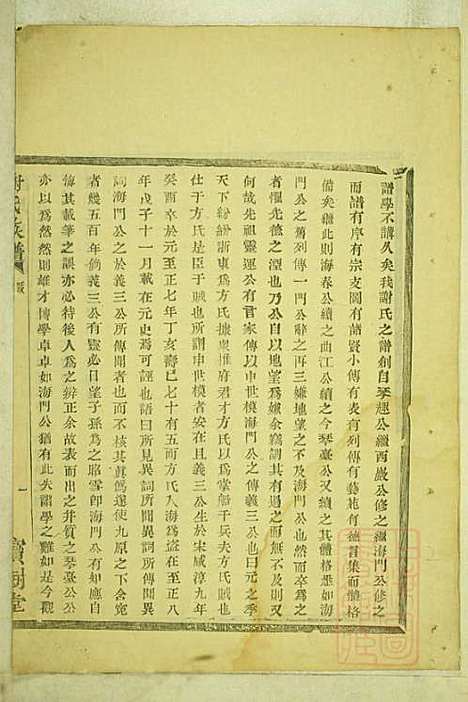 譜學不講久矣我謝氏之譜創自琴趣公繼西嚴公修之繼海門公修之
而譜有序有宗支圖有諸賢小傳有表有列傳有藝苑有德言集而體格
備矣繼此則海春公續之曲江公續之今琴臺公又續之其體格悉如海
門公之舊列傳一門公辭之再三嫌地望之不及海門公也然而卒為之
者懼先德之湮也乃公自以地望為嫌余竊謂其有過之而無不及則又
何故先祖靈運公有言家傳以申世模海門公之傳義三公也曰元之季
天下紛紛浙東為方氏據奥惟府君才方氏以掌船千兵夫方氏賊也
仕于方氏是臣于賊也所謂申世模者安在且義三公生於宋咸淳九年
癸酉卒於元至正七年丁亥壽已七十有五而方氏入海為盜在至正八
年戊子十一月載在元史焉可誣也語曰所見異詞所聞異詞所傳聞異
詞海門公之於義三公所傳聞者也而不核其真僞遂使九原之下含寃
者幾五百年倘義三公有靈必日望子孫為之昭雪即海門公有知應自
悔其載筆之誤亦必待後人為之辨正余故表而出之并質之琴臺公公
亦以為然然則雄才博學卓卓如海門公猶有此失譜學之難如是今觀
謝氏族譜
一
寶樹堂